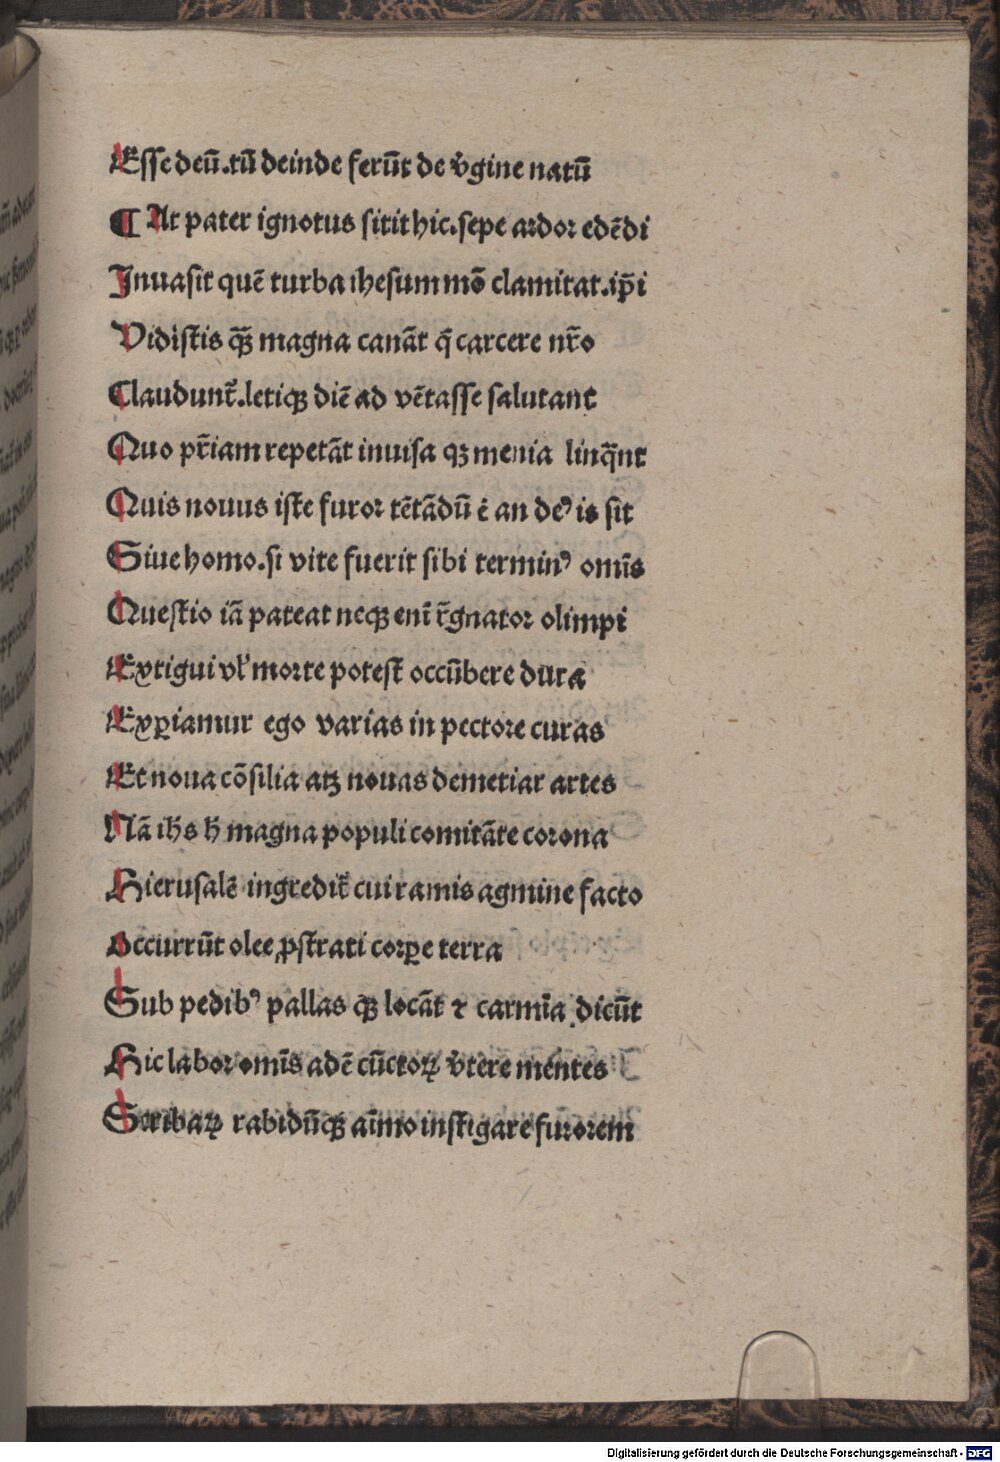 Esse deū.tū deinde ferūt de v̊gine natū
¶ At pater ignotus sitit hic.sepe ardor edēdi
Inuasit quē turba ihesum mō clamitat.ip̄i
Vidistis qȝ̄ magna canāt q̄ carcere nr̄o
Claudunt᷑.letiqȝ diē ad vētasse salutant
Quo pr̄iam repetāt inuisa qȝ menia linq̄nt
Quis nouus iste furor tētādū ē an deꝰ is sit
Siue homo.si vite fuerit sibi terminꝰ omīs
Questio iā pateat neqȝ enī r̄gnator olimpi
Extigui vl̓ morte potest occūbere dura
Exꝑiamur ego varias in pectore curas
Et noua cōsilia atȝ nouas demetiar artes
Nā ihs h̄ magna populi comitāte corona
Hierusalē ingredit᷑ cui ramis agmine facto
Occurrūt olee ꝓstrati corꝑe terra
Sub pedibꝰ pallas qȝ locāt ⁊ carmīa dicūt
Hic labor omīs adē cūctoꝝ v̓tere mentes
Scribaꝝ rabidūqȝ aīmo instigare furorem
Digitalisierung gefördert durch die Deutsche Forschungsgemeinschaft - DFG